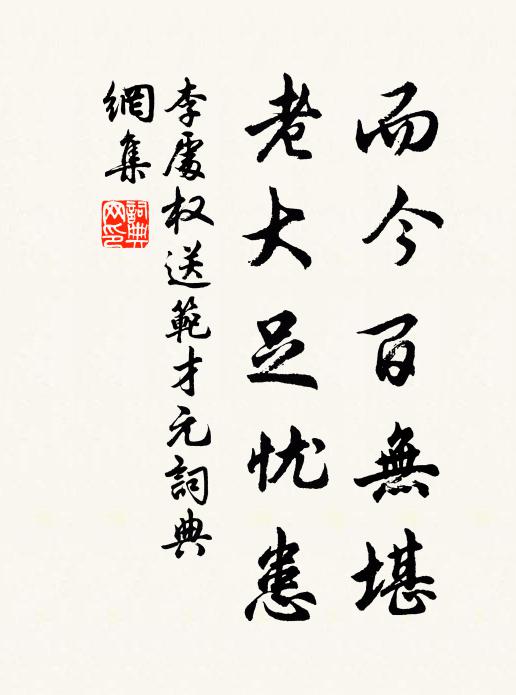 而今百無堪
老大足忧患
李處权送範才元詞典
網集
詞典
网印